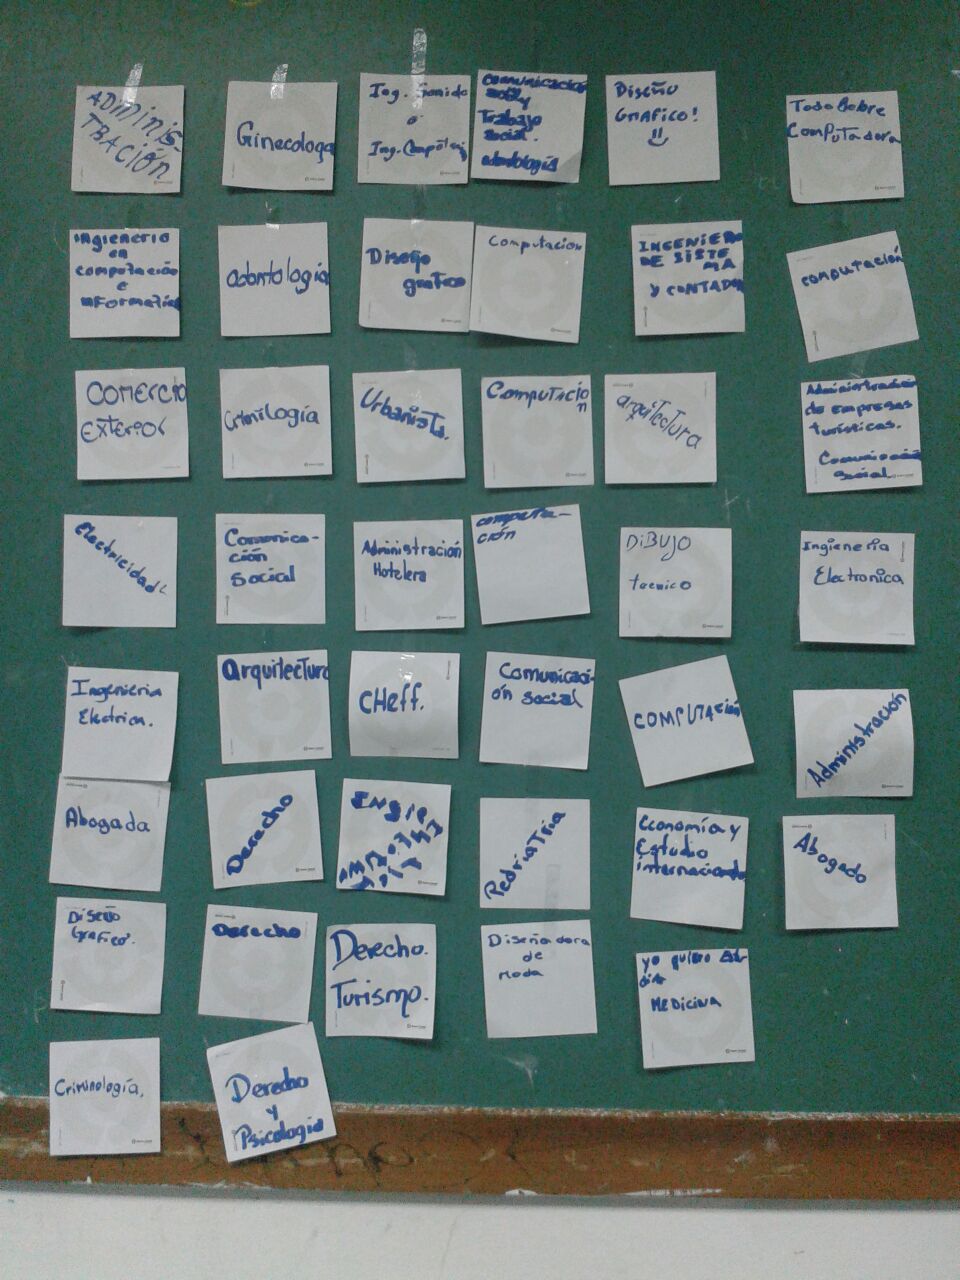 ADMINIS
TRACIÓN
Ginecologa
Ing. Sonido
o
Ing.
comunicación
social y
Trabajo
social.
odontología
Diseño
GRAFICO!
Todo Sobre
Computadora
ingieneria
en
computación
e
informatica
odontología
Diseño
grafico
Computacion
INGENIERO
DE SISTE
MA
Y CONTADOR
computación
COMERCIO
Exterior
Crimilogía
Urbanista.
Computacio
n
arquitectura
Administración
de empresas
turísticas.
Comunicación
social.
Electricidad
Comunica-
ción
Social
Administración
Hotelera
computa-
ción
DIBUJO
tecnico
Ingieneria
Electronica
Ingenieria
Electrica.
arquitectura
CHeff.
Comunicaci-
ón social
COMPUTACIÓN
Administración
Abogada
Derecho
INgie
Pedriatria
Economía y
Estudio
internacional
Abogado
DISEÑO
Grafico.
Derecho
Derecho.
Turismo.
Diseñadora
de
moda
yo quiero
MEDICINA
Criminología.
Derecho
y
Psicología